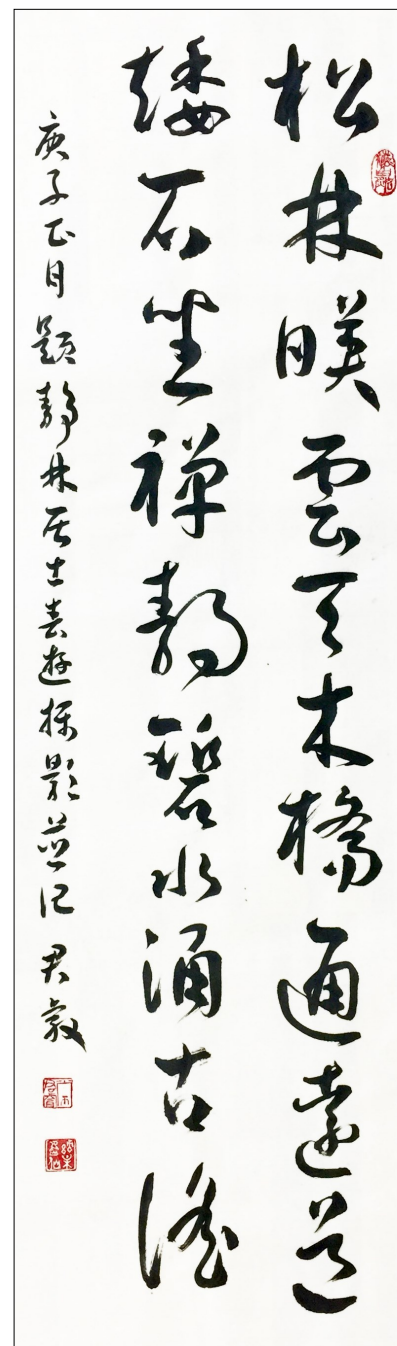 松林暎雲天木橋通遠道
矮石坐禪靜碧水涌古謠
庚子正月題靜林居士春遊攝影並記 君